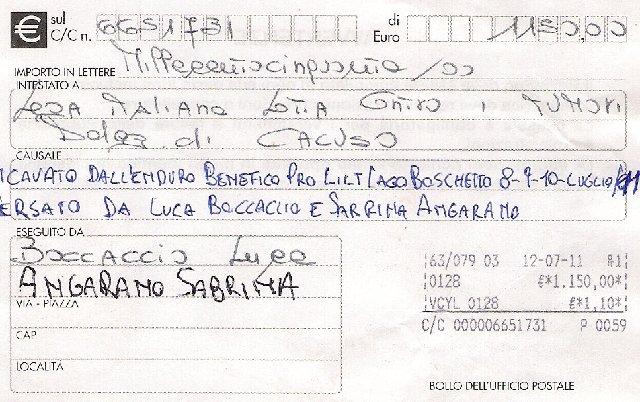 € sul C/C n. 6651731 di Euro 1150,00
IMPORTO IN LETTERE Millecentocinquanta/00
INTESTATO A
Lega Italiana Lotta Contro i TUMORI
di CALUSO
CAUSALE
ICAVATO DALL'ENDURO BENEFICO PRO LILT LAGO BOSCHETTO 8-9-10-LUGLIO/
ERSATO DA LUCA BOCCACCIO E SABRINA ANGARANO
ESEGUITO DA
BOCCACCIO Luca
ANGARANO SABRINA
VIA - PIAZZA
CAP
LOCALITÀ
63/079 03 12-07-11 R1
0128 €*1.150,00*
VCYL 0128 €*1,10*
C/C 000006651731 P 0059
BOLLO DELL'UFFICIO POSTALE